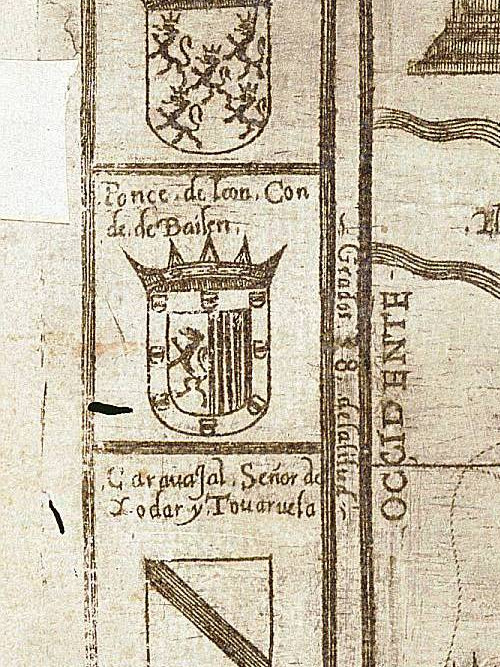 Ponce. de leon. Con
de. de Bailen.
Caravajal. Señor de
Xodar y Tovaruela
Grados 38. de latitud
OCCIDENTE